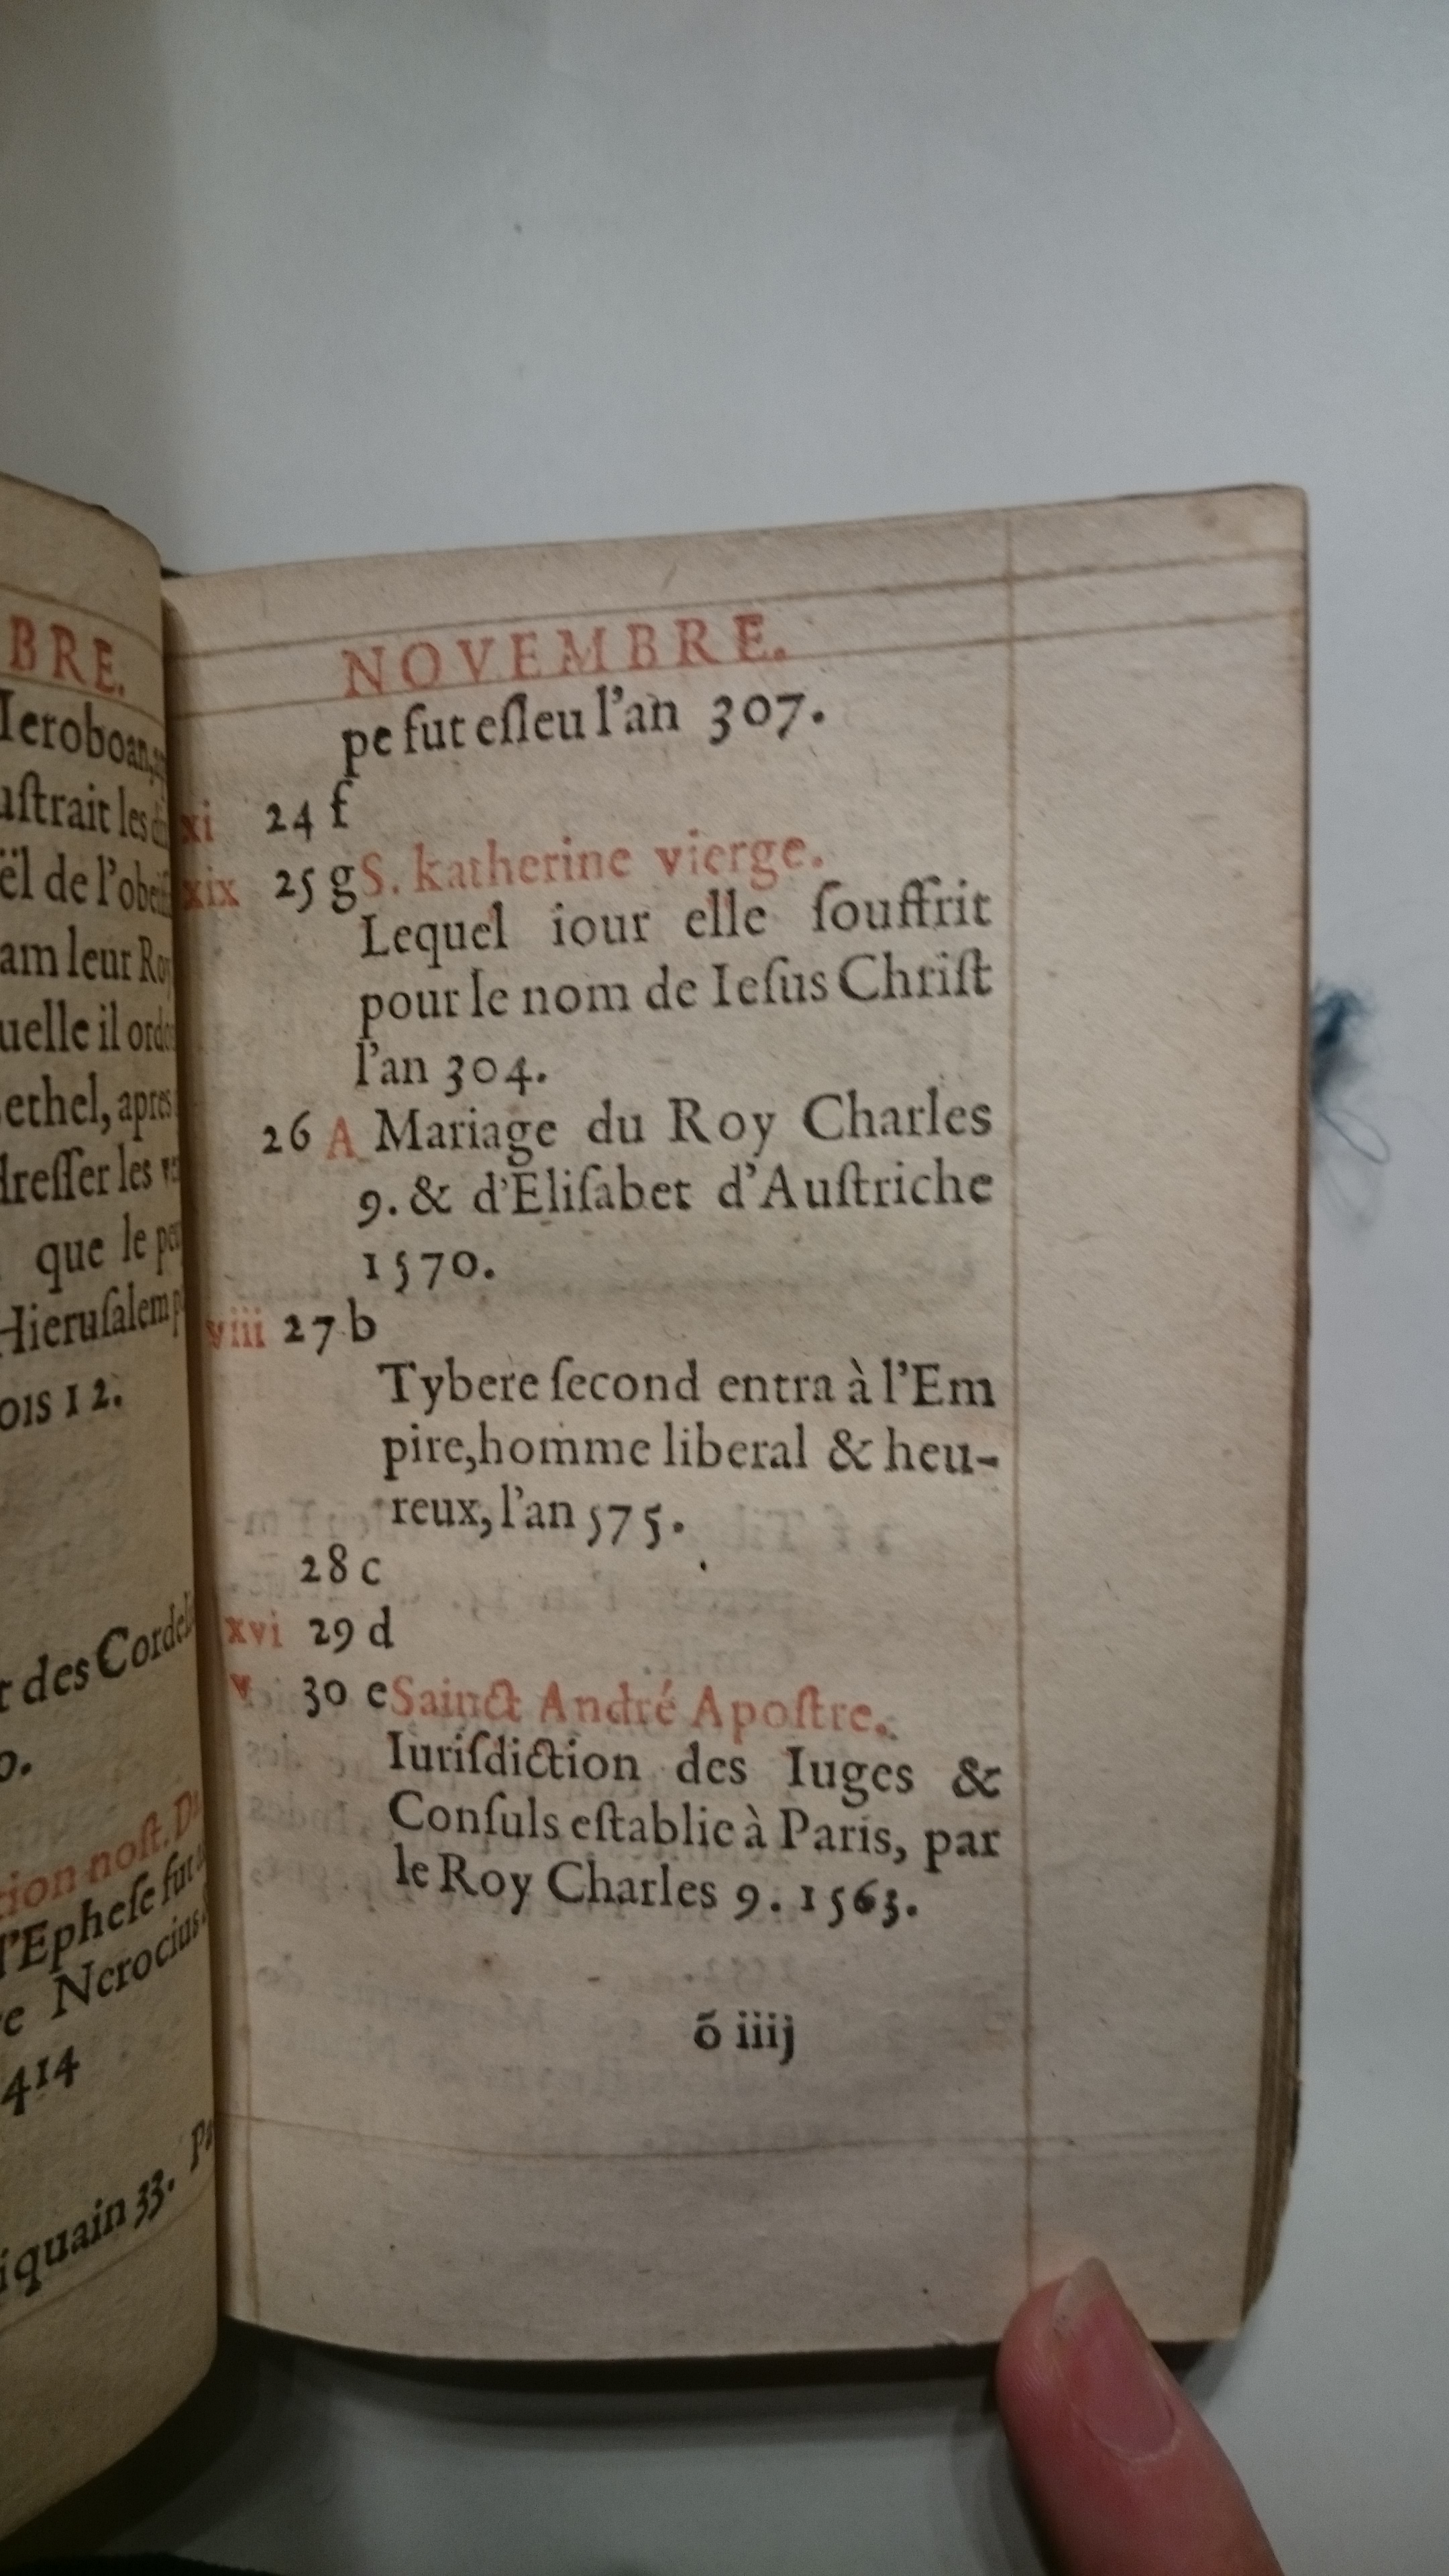 BRE.
Ieroboan,
uſtrait les
ël de l'obeiſ
am leur Roy
uelle il ordo
ethel, apres
dreſſer les
que le peu
Hieruſalem
ois 12.
des Cordel
tion noſt.
l'Epheſe fut
Nerocius
414
iquain 33.
NOVEMBRE.
pe fut eſleu l'an 307.
xi 24 f
xix 25 g S. katherine vierge.
Lequel iour elle ſouffrit
pour le nom de Ieſus Chriſt
l'an 304.
26 A Mariage du Roy Charles
9. & d'Eliſabet d'Auſtriche
1570.
viii 27 b
Tybere ſecond entra à l'Em
pire, homme liberal & heu-
reux, l'an 575.
28 c
xvi 29 d
v 30 e Sainct André Apoſtre.
Iuriſdiction des Iuges &
Conſuls eſtablie à Paris, par
le Roy Charles 9. 1563.
õ iiij